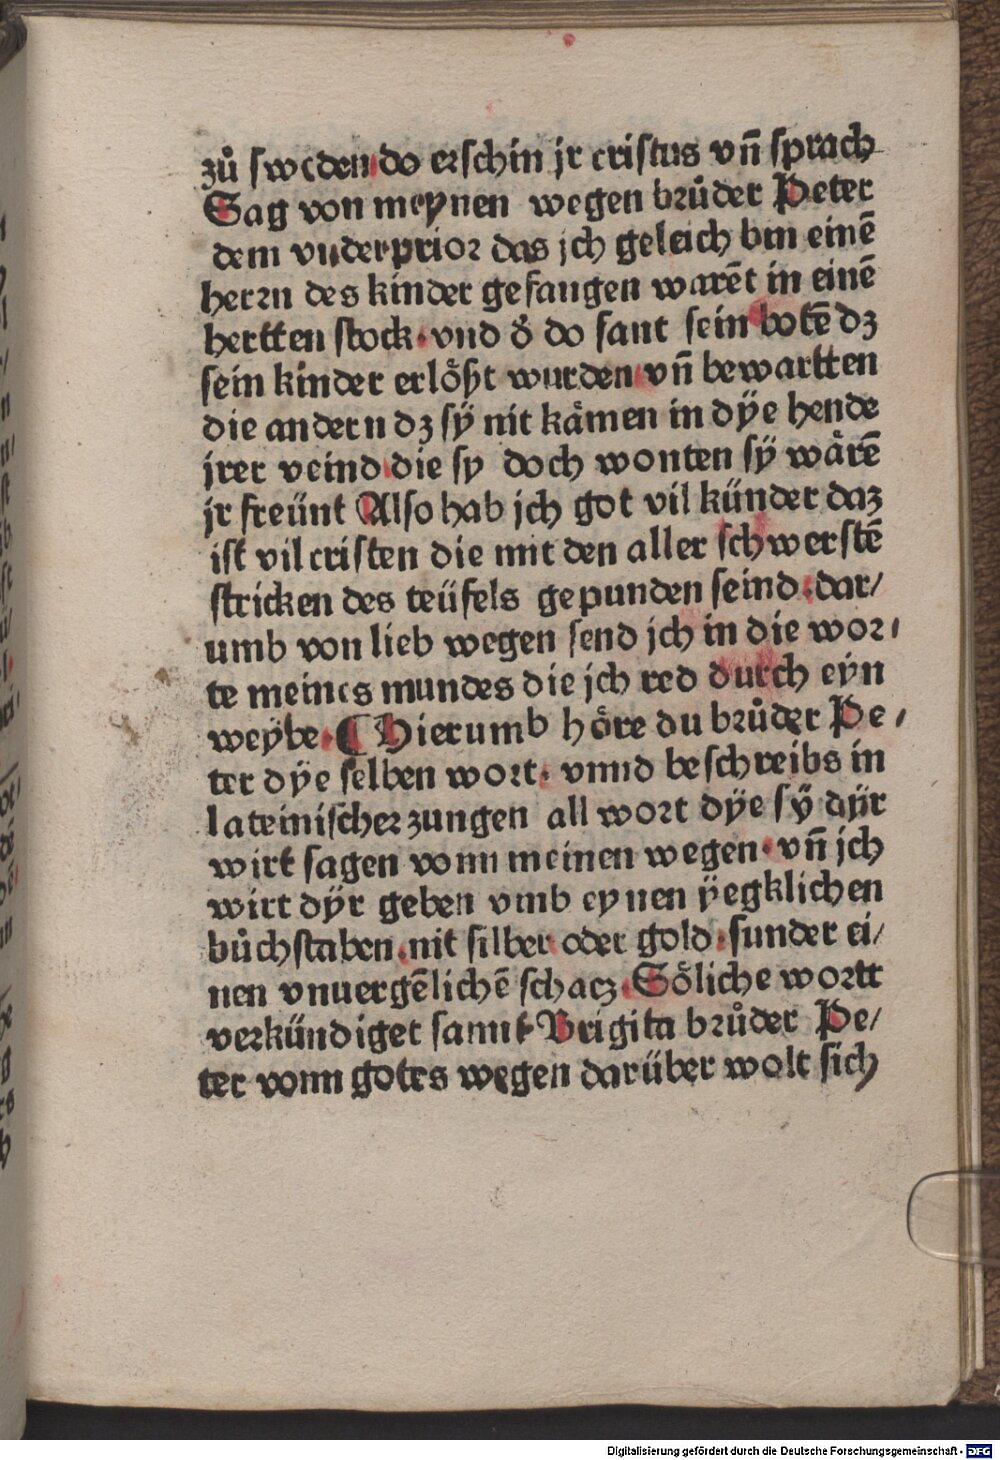 zů sweden do erschin jr cristus vn̄ sprach
Sag von meynen wegen brůder Peter
dem vnderprior das jch geleich bin einē
herrn des kinder gefangen warēt in einē
hertten stock· vnd d̄ do sant sein botē dz
sein kinder erlößt wurden vn̄ bewartten
die andern dz sÿ nit kämen in dÿe hende
jrer veind die sy doch wonten sÿ wärē
jr freünt Also hab jch got vil künder daz
ist vil cristen die mit den aller schwerstē
stricken des teüfels gepunden seind· dar/
umb von lieb wegen send jch in die wor/
te meines mundes die jch red durch eyn
weÿbe· ¶ Hierumb höre du brůder Pe/
ter dÿe selben wort· vnnd beschreibs in
lateinischer zungen all wort dÿe sÿ dÿr
wirt sagen vonn meinen wegen· vn̄ jch
wirt dÿr geben vmb eynen ÿegklichen
bůchstaben· nit silber oder gold· sunder ei/
nen vnuergēlichē schacz· Söliche wortt
verkündiget sannt Brigita brůder Pe/
ter vonn gotes wegen darüber wolt sich
Digitalisierung gefördert durch die Deutsche Forschungsgemeinschaft - DFG